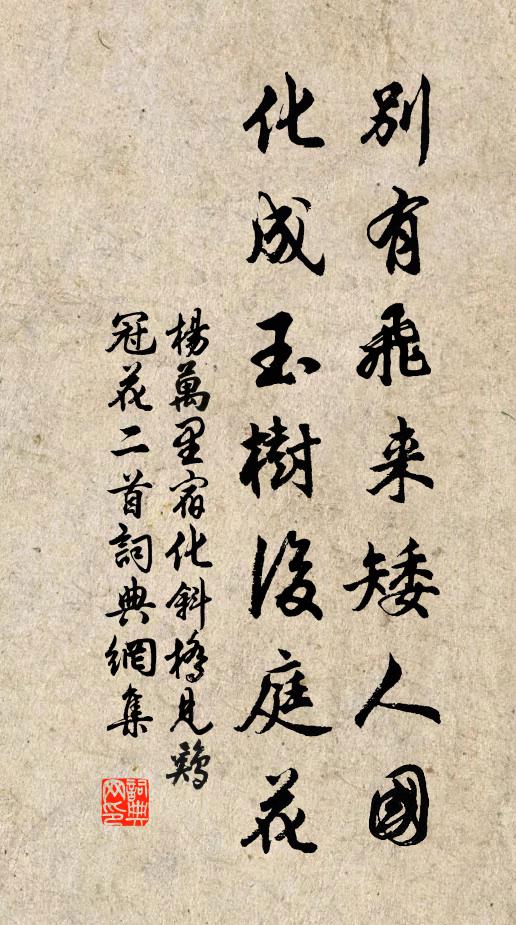 別有飛来矮人國
化成玉樹後庭花
楊萬里宿化斜橋見鶏
冠花二首詞典網集
詞典網印